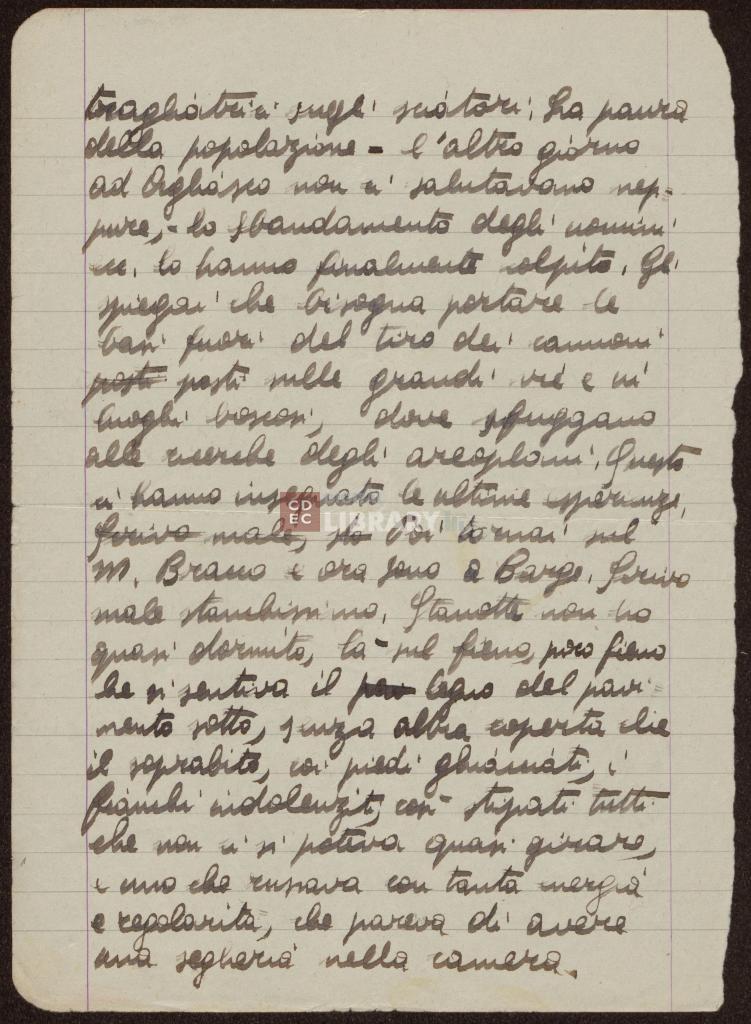 tragliatrici sugli sciatori; ha paura
della popolazione - l'altro giorno
ad Agliasco non ci salutavano nep-
pure, - lo sbandamento degli uomini
ecc. lo hanno finalmente colpito. Gli
spiegai che bisogna portare le
basi fuori del tiro dei cannoni
posti posti sulle grandi vie e in
luoghi boscosi, dove sfuggano
alle ricerche degli areoplani. Questo
ci hanno insegnato le ultime esperienze.
Scrivo male, sto Poi tornai sul
M. Bracco e ora sono a Barge. Scrivo
male stanchissimo. Stanotte non ho
quasi dormito, là sul fieno, poco fieno
che si sentiva il legno del pavi-
mento sotto, senza altra coperta che
il soprabito, coi piedi ghiacciati, i
fianchi indolenziti, così stipati tutti
che non ci si poteva quasi girare,
e uno che russava con tanta energia
e regolarità, che pareva di avere
una segheria nella camera.
CDEC
LIBRARY